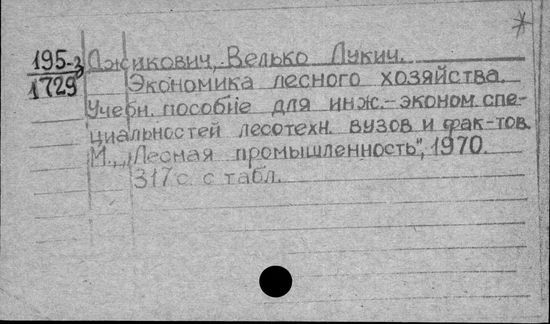 195-3
1729
Джикович, Велько Лукич.
Экономика лесного хозяйства.
Учебн. пособие для инж.-эконом. спе-
циальностей лесотехн. вузов и фак-тов.
М., „Лесная промышленность", 1970.
317 с. с табл.